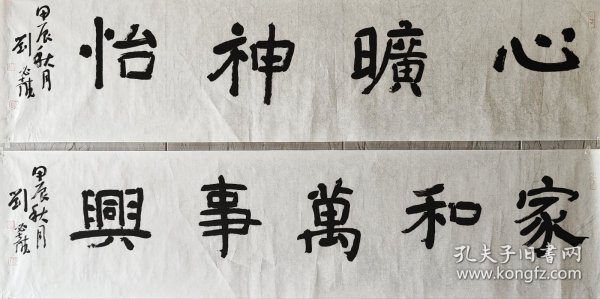 心曠神怡
甲辰秋月
劉
家和萬事興
甲辰秋月
劉
孔夫子旧书网
www.kongfz.com